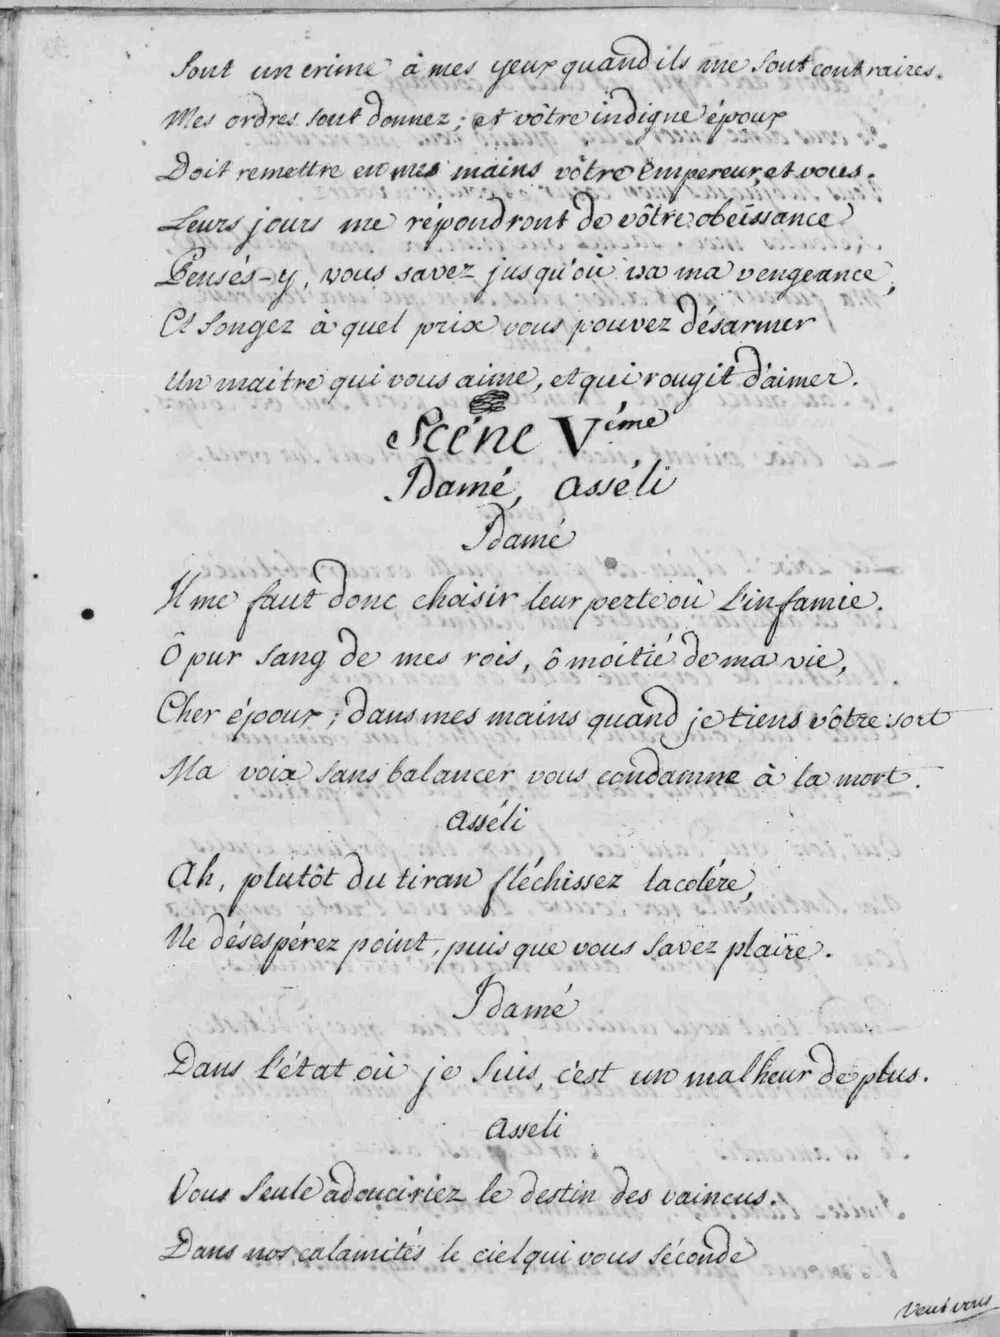 sont un crime à mes yeux quand ils me sont contraires.
Mes ordres sont donnez; et vôtre indigne époux
Doit remettre en mes mains vôtre Empereur, et vous.
Leurs jours me répondront de vôtre obeïssance
Pensés-y, vous savez jusqu'où va ma vengeance,
Et songez à quel prix vous pouvez désarmer
Un maitre qui vous aime, et qui rougit d'aimer.
Scéne Véme
Idamé, Asséli
Idamé
Il me faut donc choisir leur perte où l'infamie.
Ô pur sang de mes rois, ô moitié de ma vie,
Cher époux; dans mes mains quand je tiens vôtre sort
Ma voix sans balancer vous condamne à la mort.
Asséli
Ah, plutôt du tiran fléchissez la colére,
Ne désespérez point, puis que vous savez plaire.
Idamé
Dans l'état où je suis, c'est un malheur de plus.
Asseli
Vous seule adouciriez le destin des vaincus.
Dans nos calamités le ciel qui vous séconde
Veut vous